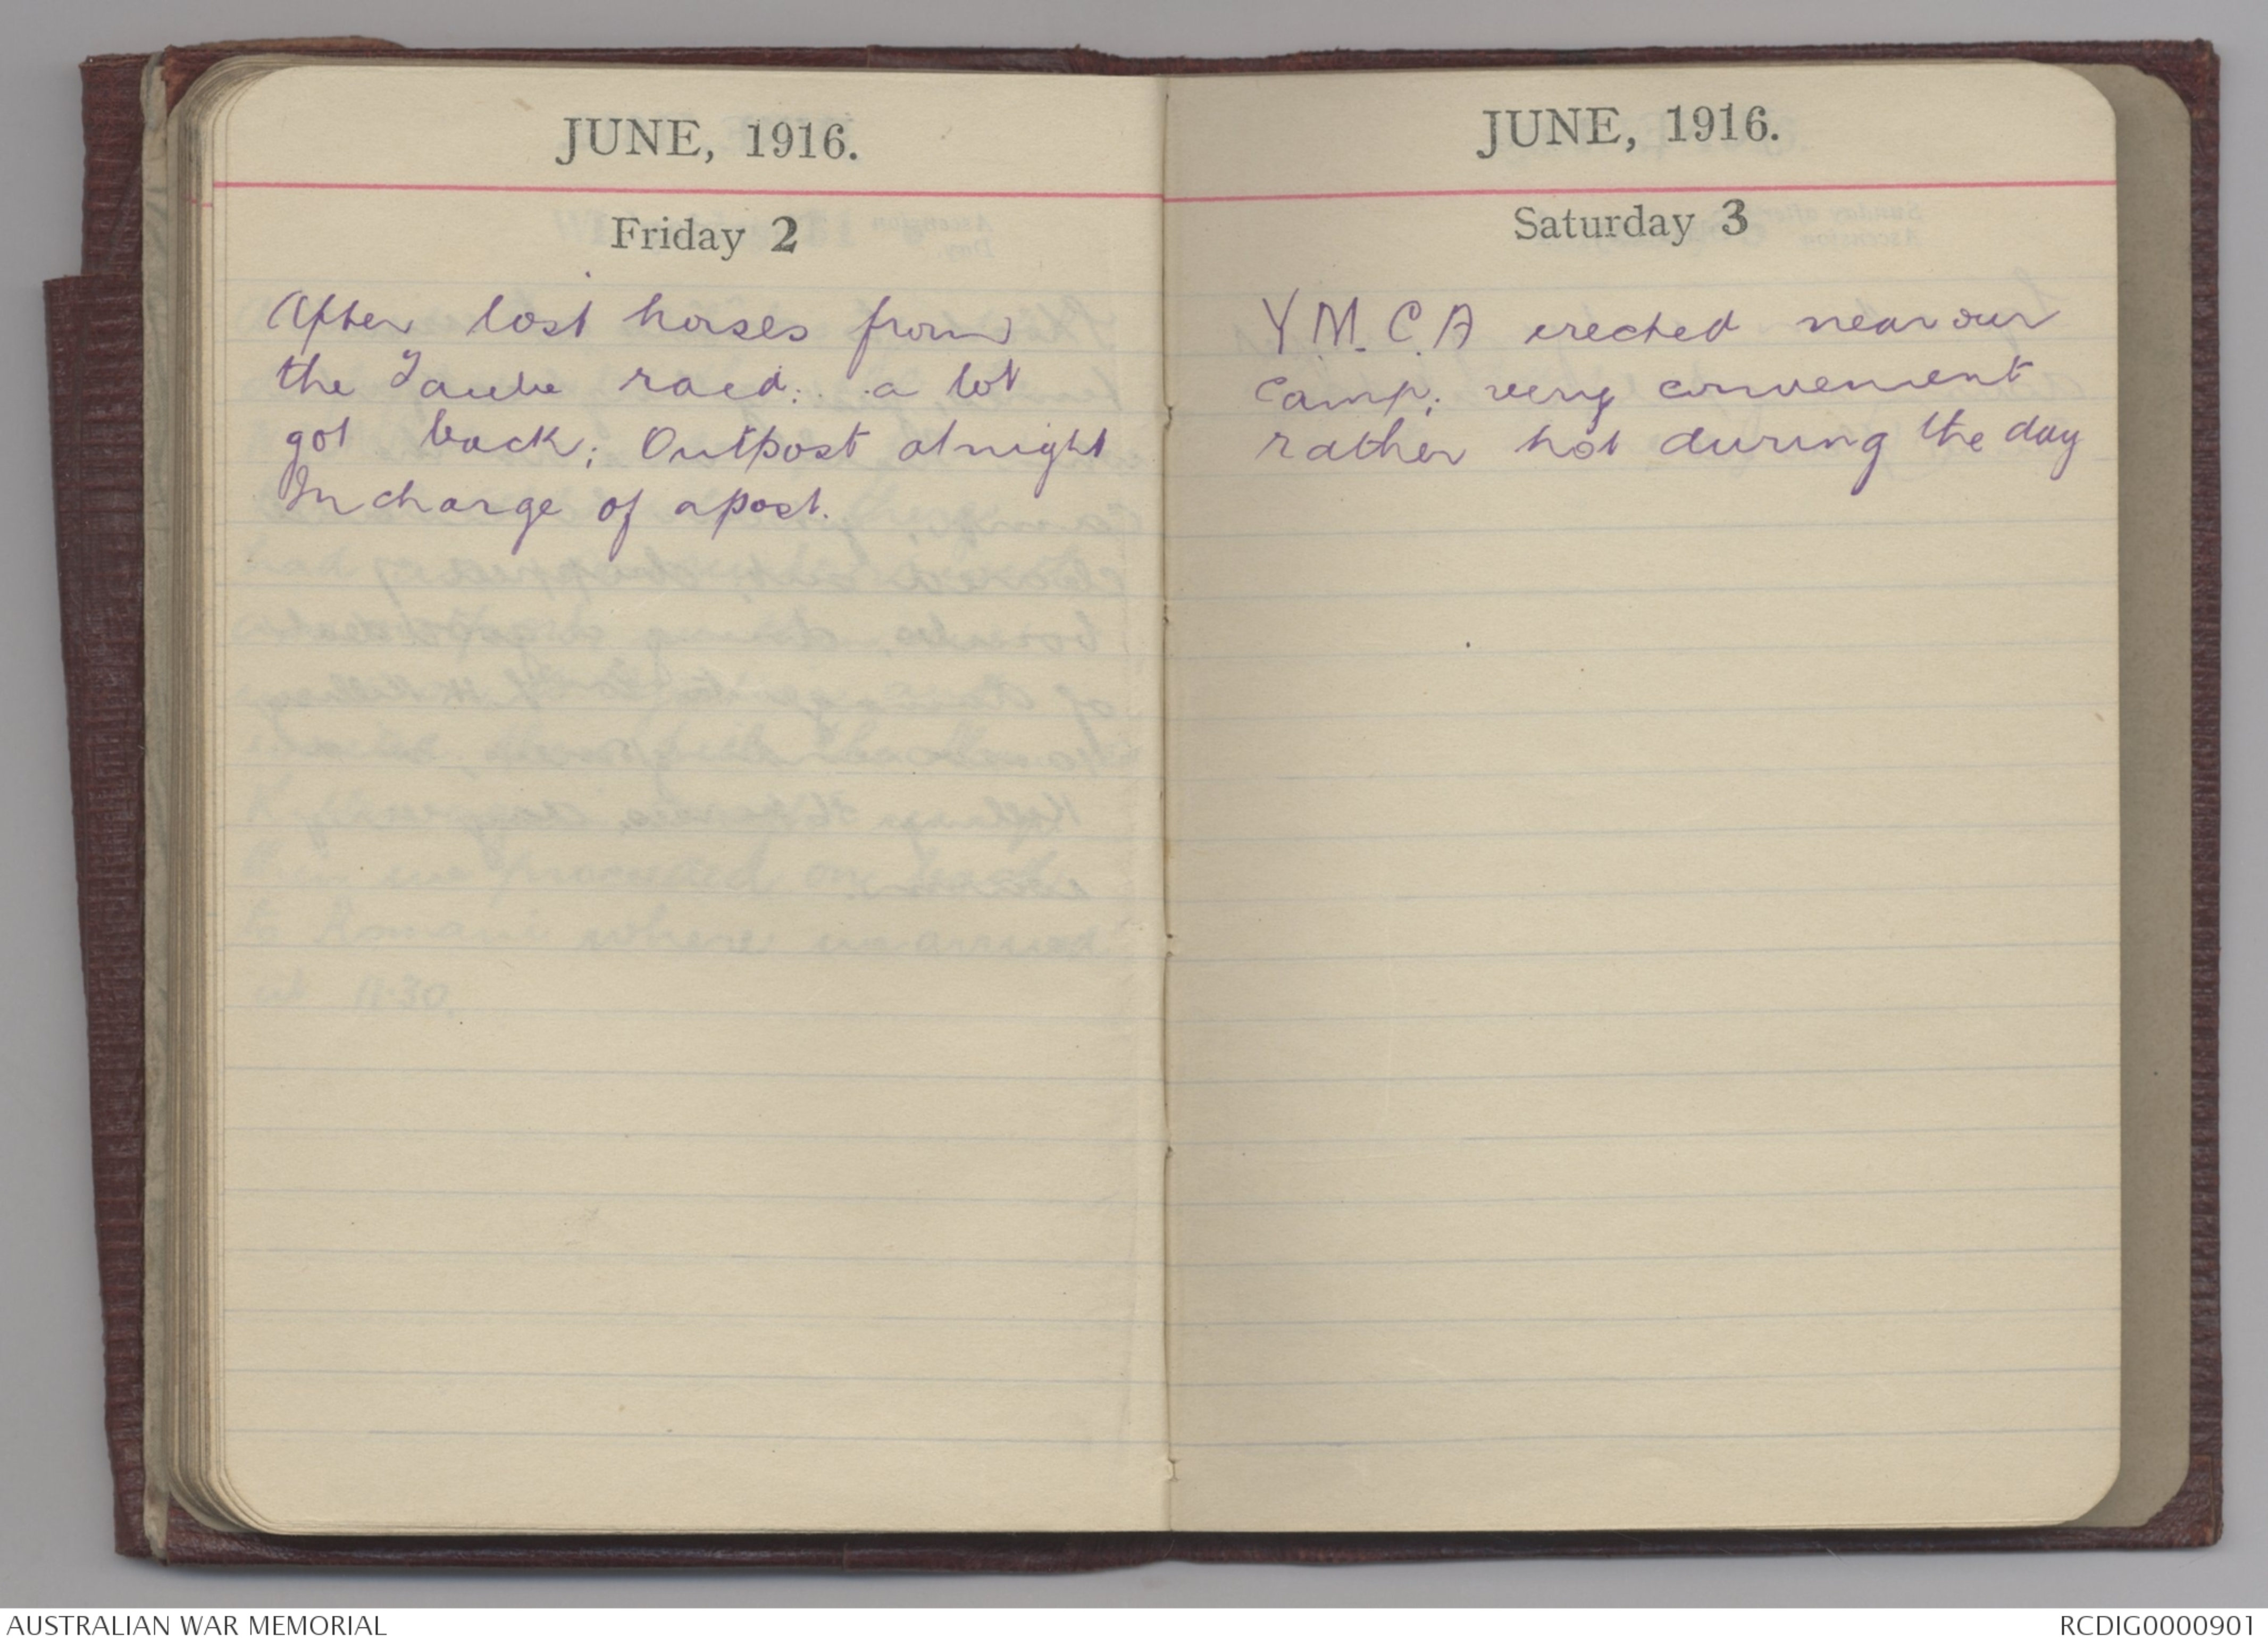 JUNE, 1916.
Friday 2
After lost horses from
the Taube raid; . a lot
got back; Outpost at night
In charge of a post.
JUNE, 1916.
Saturday 3
Y.M.C.A erected near our
camp; very convenient
rather hot during the day
AUSTRALIAN WAR MEMORIAL
RCDIG0000901